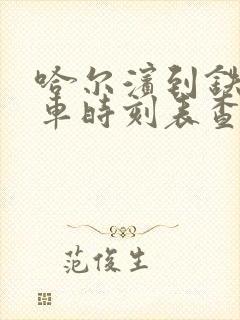 哈尔滨到铁
车时刻表查
范俊生